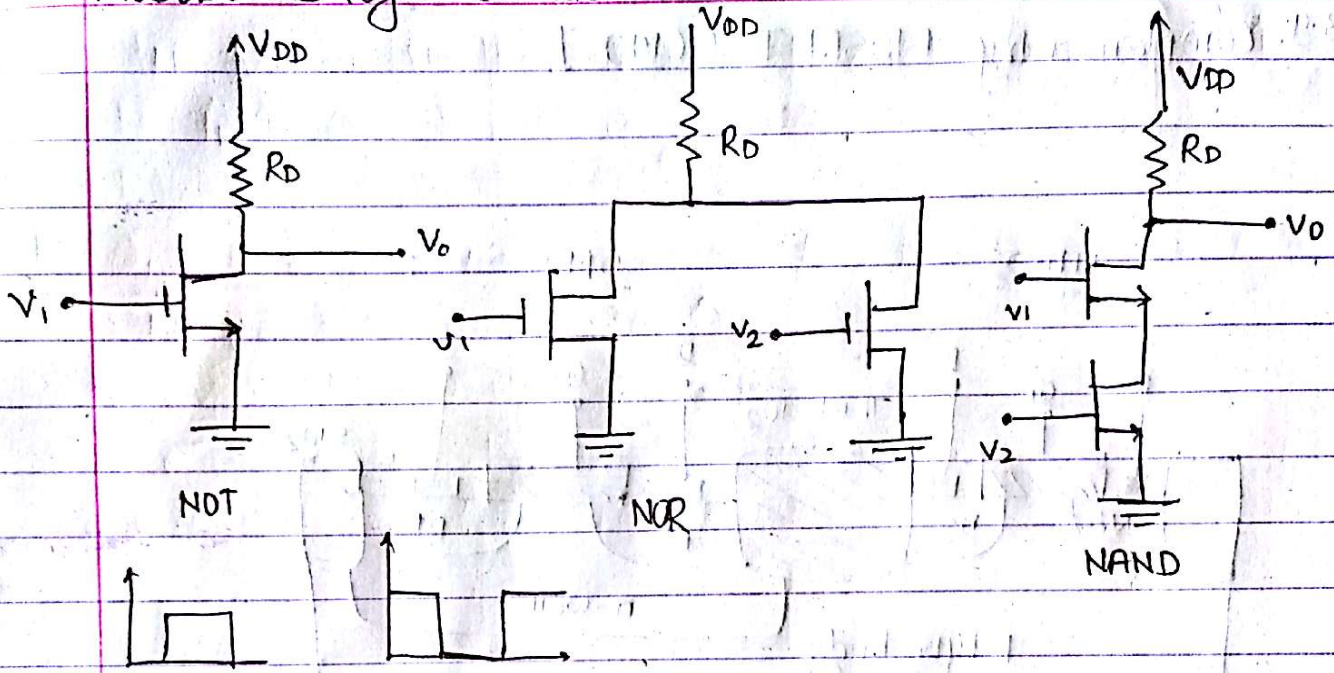 VDD
RD
Vo
V1
NOT
VDD
RD
V1
V2
NOR
VDD
RD
Vo
V1
V2
NAND